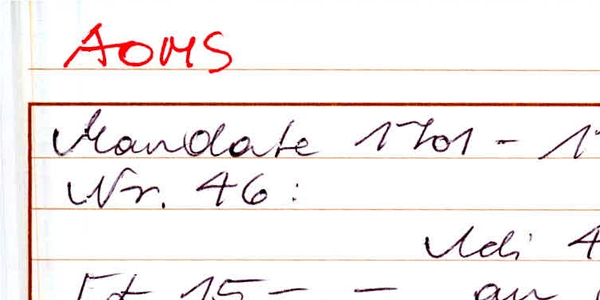 AOMS
Mandate 1701 - 1
Nr. 46:
Adi 4
15 - - an